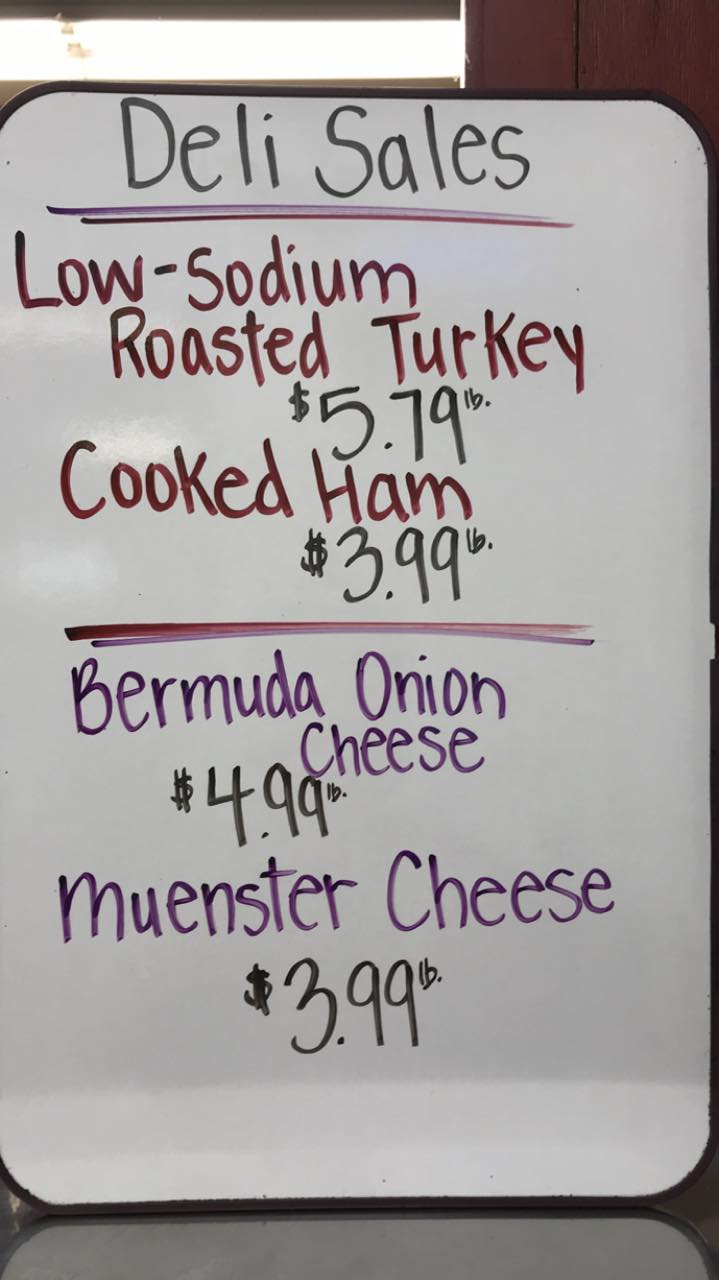 Deli Sales
Low-Sodium
Roasted Turkey
$5.79 lb.
Cooked Ham
$3.99 lb.
Bermuda Onion
Cheese
$4.99 lb.
Muenster Cheese
$3.99 lb.